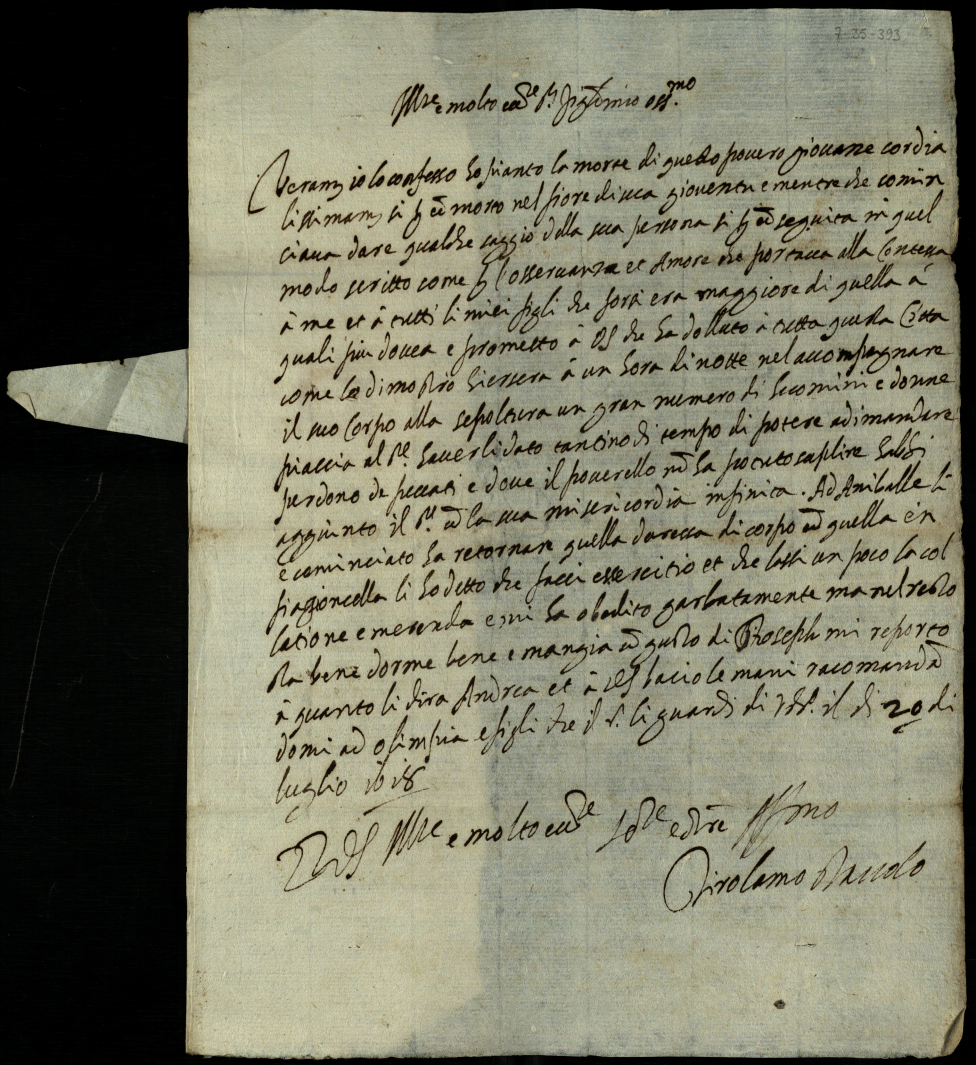 7-35-393
Ill.re e molto ecc.te S.r oss.mo
Veram.te io lo confesso ho pianto la morte di questo povero giovane cordia
lissimam.te si p eẽ morto nel fiore di sua gioventu e mentre che comin
ciava dare qualche saggio della sua persona si p eẽ seguita in quel
modo scritto come p l'osservanza et Amore che portava alla Contessa
à me et à tutti li miei figli che forsi era maggiore di quella à
quali piu dovea e prometto à VS che ha dolluto à tutta questa Città
come lo dimostrò hiersera à un hora di notte nel accompagnare
il suo Corpo alla sepoltura un gran numero di huomini e donne
piaccia al S.re haverli dato tantino di tempo di potere adimandare
perdono de peccati e dove il poverello nõ ha pocuto suplire habbi
aggiunto il S.re cõ la sua misericordia infinita. Ad Aniballe li
è cominciato ha retornare quella durezza di corpo cõ quella en
fiagioncella li ho detto che facci essercitio et che lassi un poco la col
latione e merenda e mi ha obedito garbatamente ma nel resto
sta bene dorme bene e mangia cõ gusto di Gioseph mi reporto
à quanto li dira Andrea et à VS bacio le mani racomandã
domi ad Olimpia e figli che il S.r li guardi di il di 20 di
luglio 1618
Di VS Ill.re e molto ecc.te
Girolamo